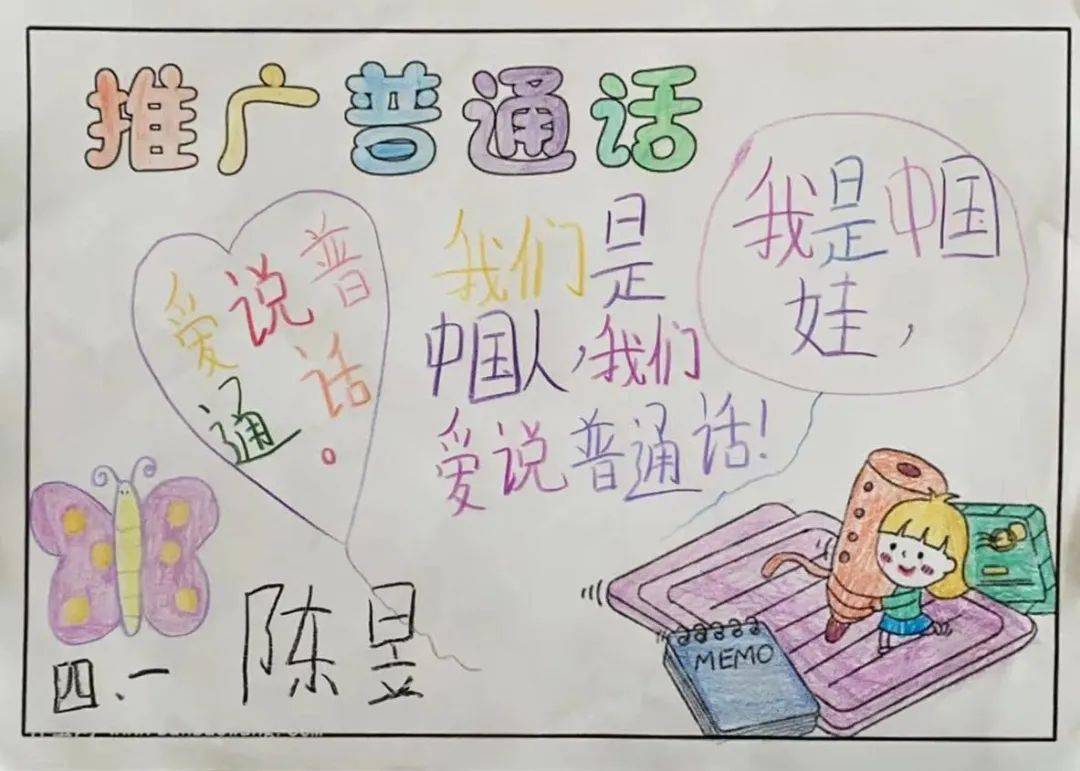 推广普通话
爱说普
通话。
我们是
中国人,我们
爱说普通话!
我是中国
娃,
MEMO
四、一
陈昱